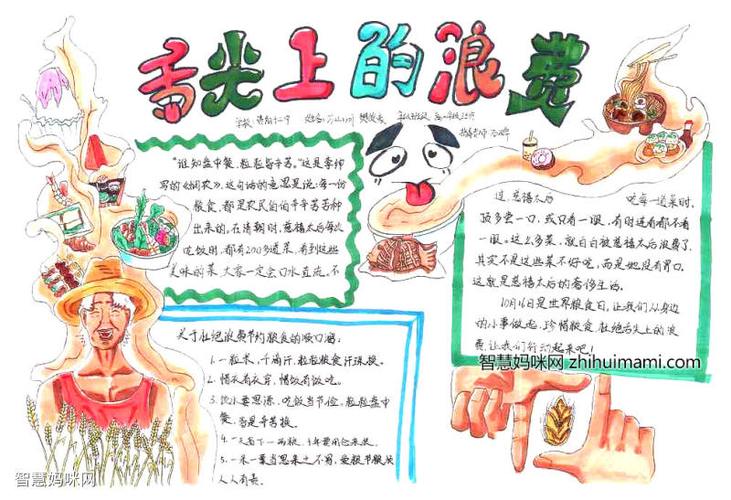 舌尖上的浪费
"谁知盘中餐,粒粒皆辛苦。"这是李绅
写的《悯农》。这句话的意思是说:每一份
粮食,都是农民伯伯辛辛苦苦种
出来的。在清朝时,慈禧太后每次
吃饭时,都有200多道菜,看到这些
美味的菜,大家一定会口水直流,不
过,慈禧太后 吃每一道菜时,
顶多尝一口,或只看一眼,有时还看都不看
一眼。这么多菜,就白白被慈禧太后浪费了。
其实不是这些菜不好吃,而是她没有胃口,
这就是慈禧太后的奢侈生活。
10月16日是世界粮食日,让我们从身边
的小事做起,珍惜粮食,杜绝舌尖上的浪
费,让我们行动起来吧!
智慧妈咪网 zhihuimami.com
关于杜绝浪费节约粮食的顺口溜:
1.一粒米,千滴汗,粒粒粮食汗珠换。
2.惜衣有衣穿,惜饭有饭吃。
3.饮水要思源,吃饭当节俭,粒粒盘中
餐,皆是辛苦换。
4.一天省下一两粮,十年要用仓来装。
5.一米一粟当思来之不易,爱粮节粮从
人人有责。
智慧妈咪网